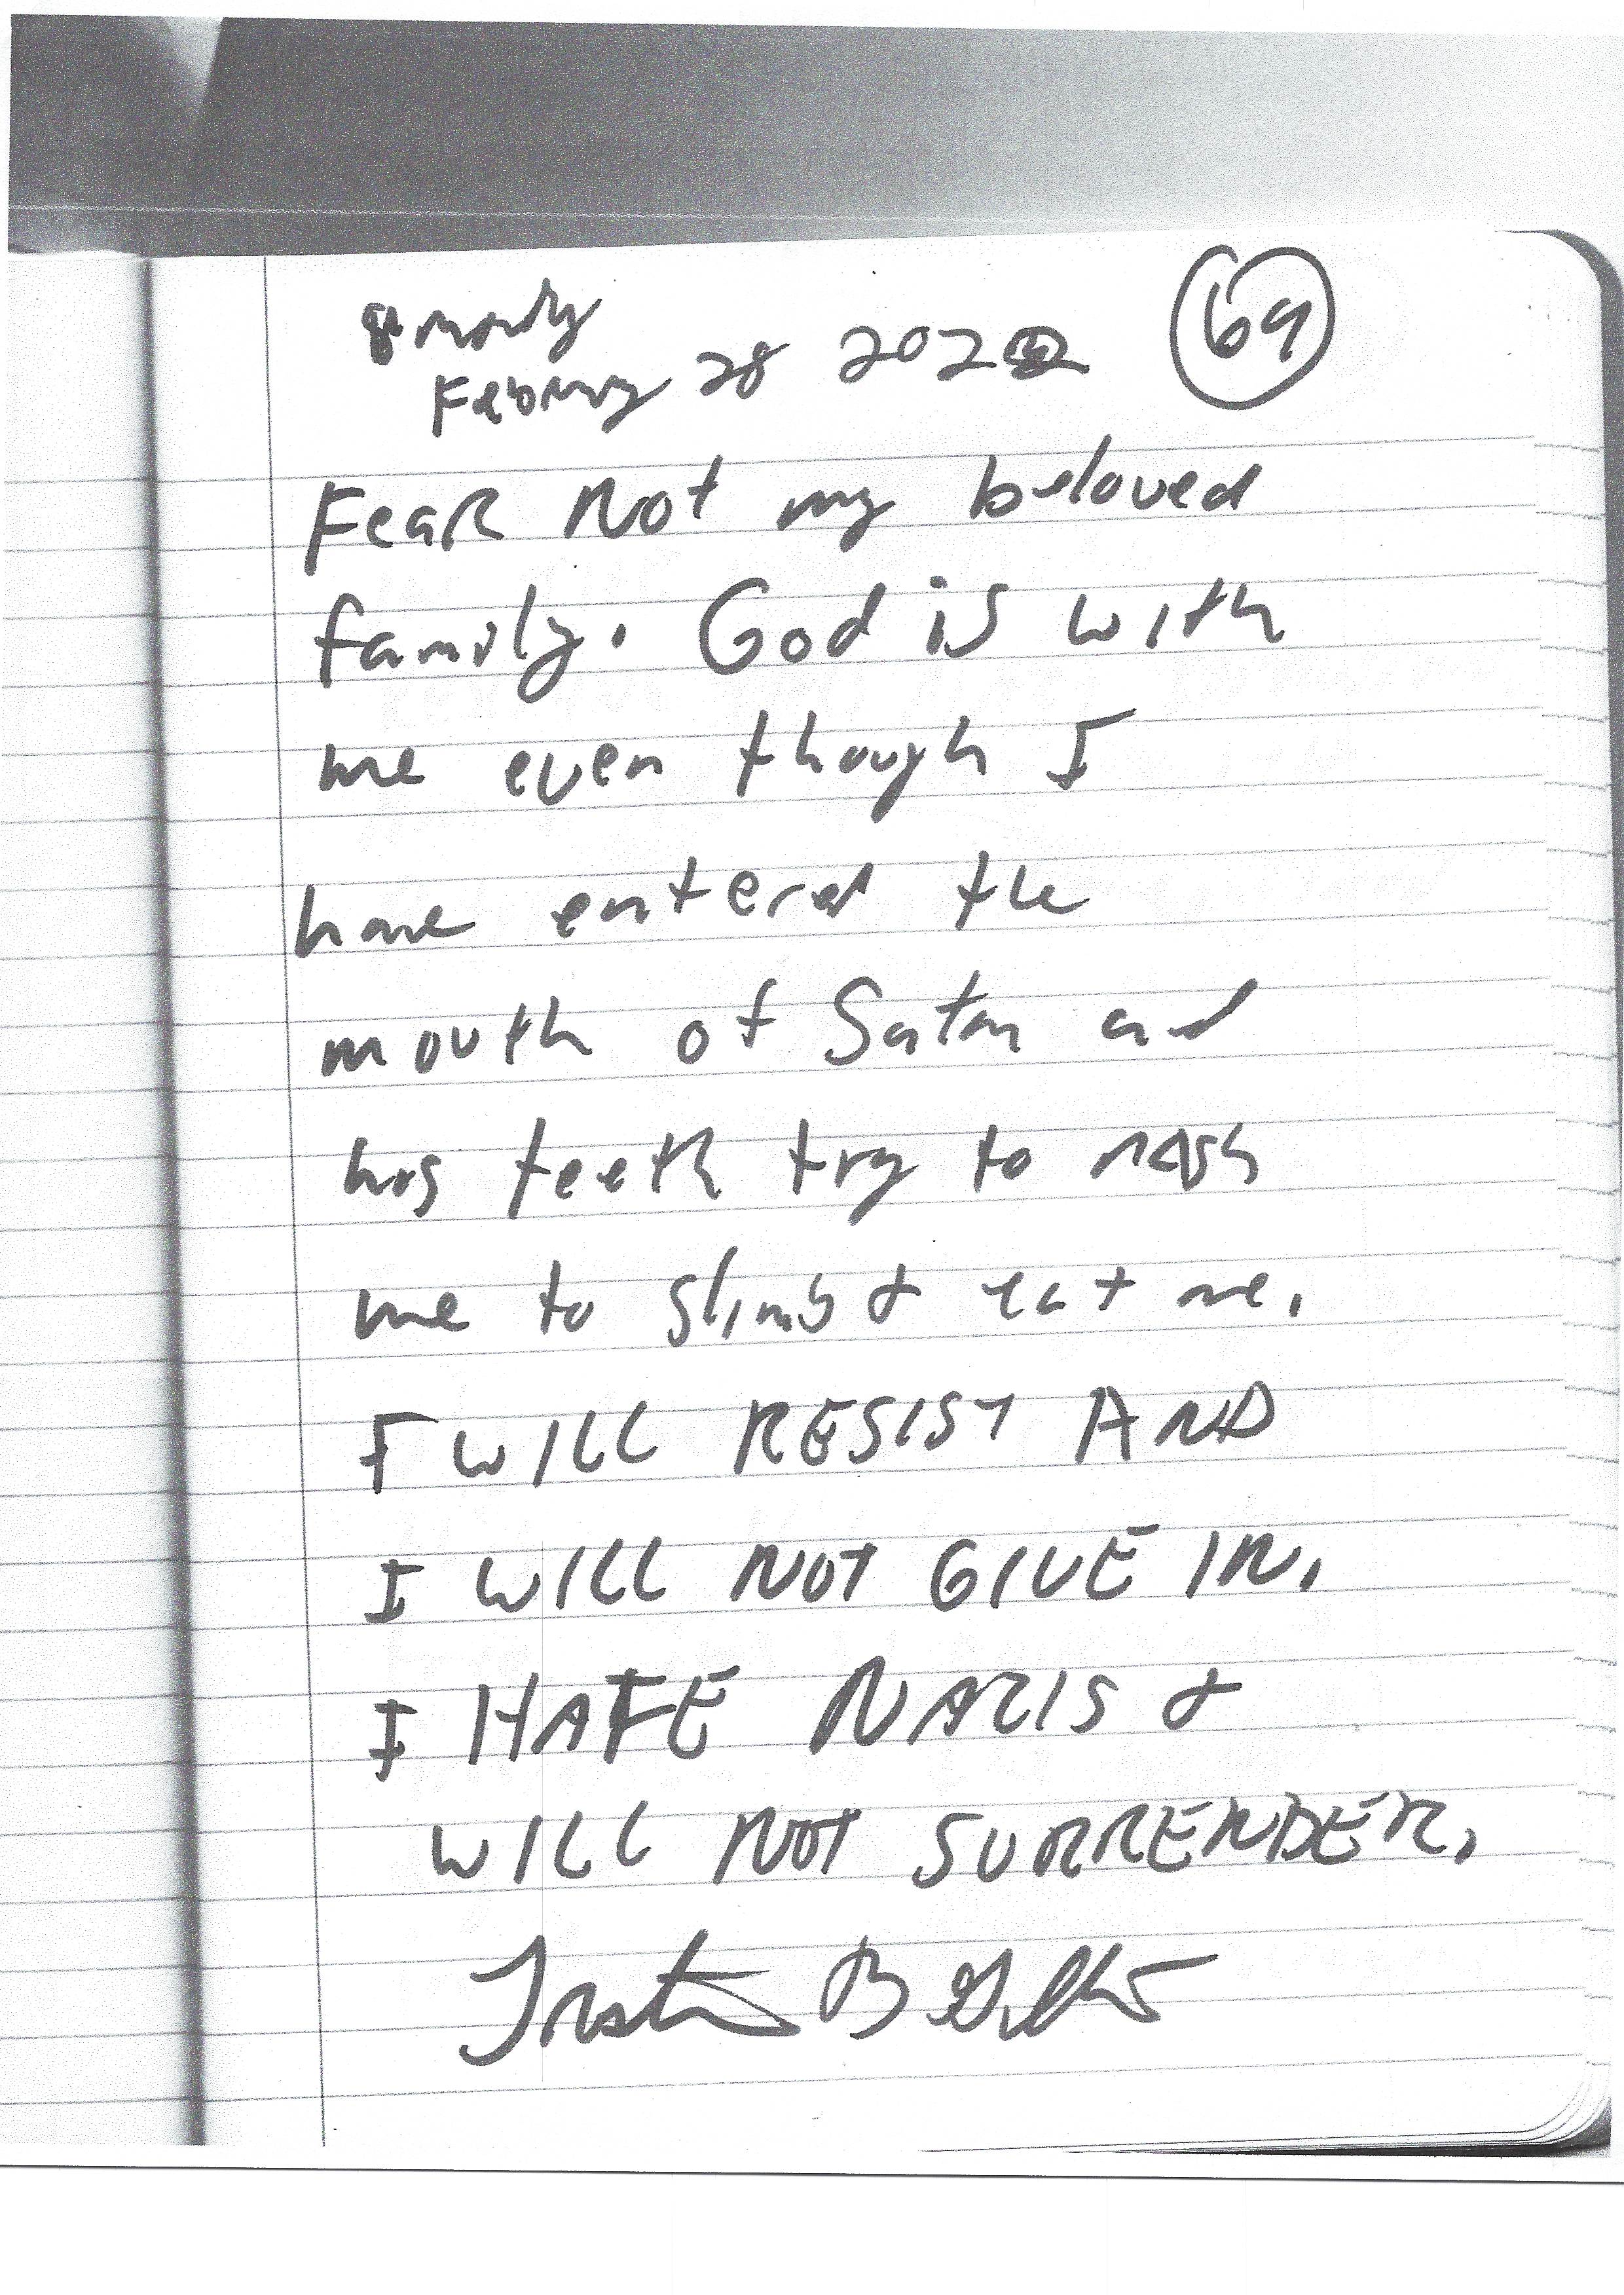 Monday
69
February 28 2022
Fear Not my beloved
family. God is with
me even though I
have entered the
mouth of Satan and
his teeth try to nash
me to slimb & eat me.
I WILL RESIST AND
I WILL NOT GIVE IN.
I HATE NAZIS &
WILL NOT SURRENDER.